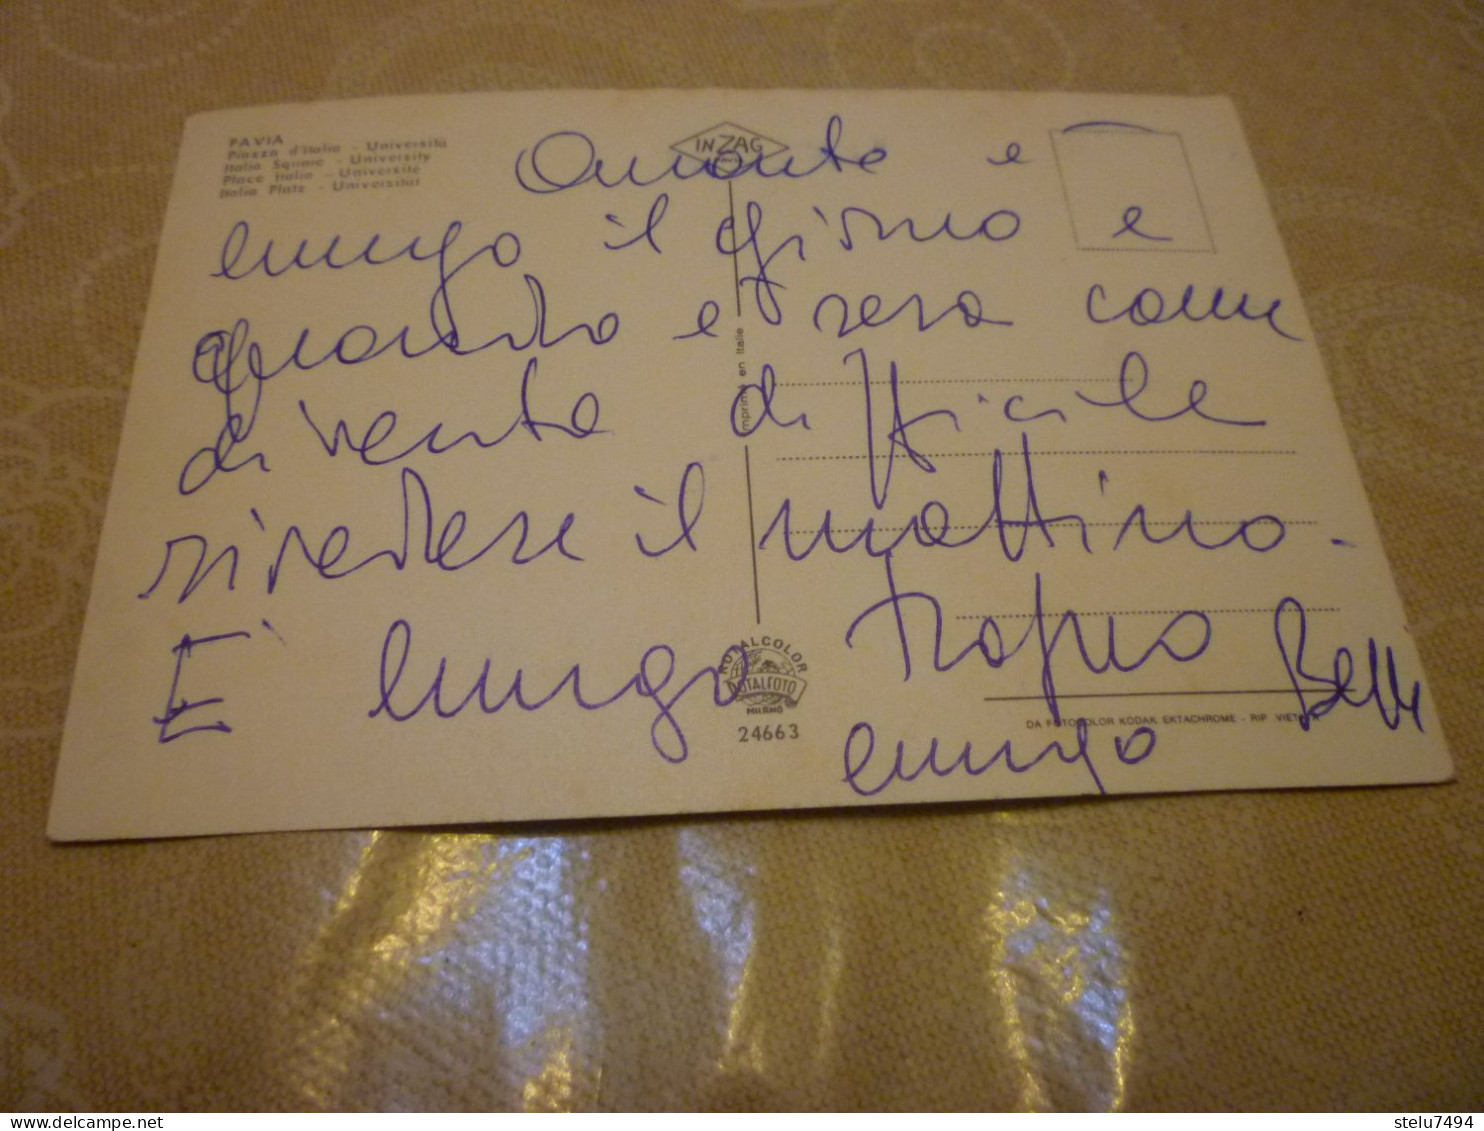 PAVIA
Piazza d'Italia - Università
Italia Square - University
Place Italia - Université
Italia Platz - Universität
INZAG
Quanto e
lungo il giorno e
quando e' sera come
diventa difficile
rivedere il mattino.
E' lungo troppo
lungo
Imprimé en Italie
ROTALCOLOR
ROTALFOTO
MILANO
24663
DA FOTOCOLOR KODAK EKTACHROME - RIP. VIETATA
delcampe.net
stelu7494